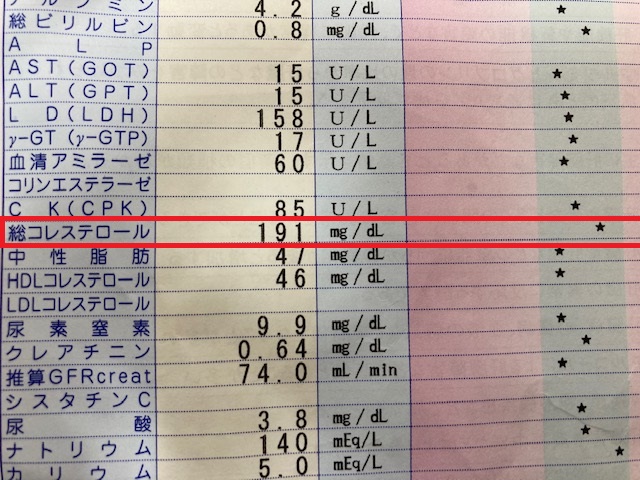 アルブミン 4.2 g/dL ★
総ビリルビン 0.8 mg/dL ★
ALP
AST(GOT) 15 U/L ★
ALT(GPT) 15 U/L ★
LD(LDH) 158 U/L ★
γ-GT(γ-GTP) 17 U/L ★
血清アミラーゼ 60 U/L ★
コリンエステラーゼ
CK(CPK) 85 U/L ★
総コレステロール 191 mg/dL ★
中性脂肪 47 mg/dL ★
HDLコレステロール 46 mg/dL ★
LDLコレステロール
尿素窒素 9.9 mg/dL ★
クレアチニン 0.64 mg/dL ★
推算GFRcreat 74.0 mL/min ★
シスタチンC
尿酸 3.8 mg/dL ★
ナトリウム 140 mEq/L ★
カリウム 5.0 mEq/L ★